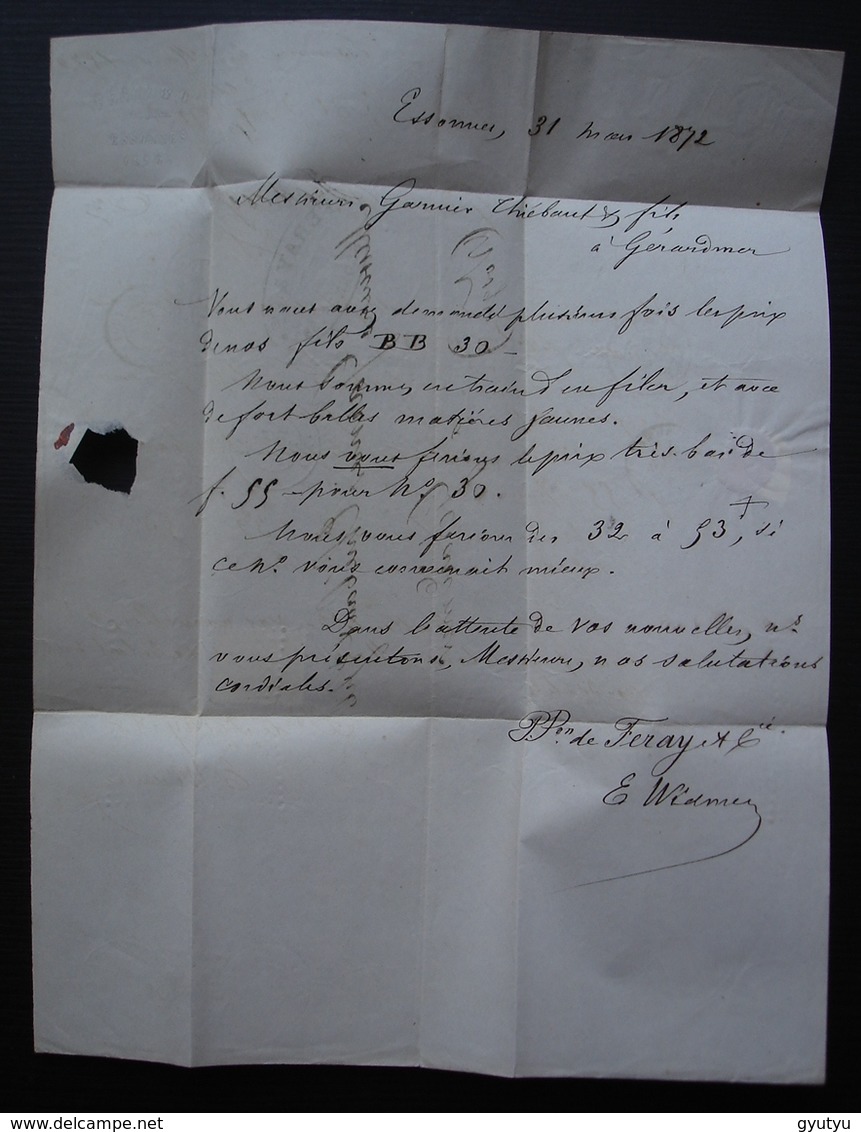 Essonnes, 31 mars 1872
Messieurs Garnier Thiébaut & fils
à Gérardmer
Vous nous avez demandé plusieurs fois les prix
de nos fils BB 30 -
Nous sommes en train d'en filer, et avec
de fort belles matières jaunes.
Nous vous ferions le prix très-bas de
f. 55 - pour No. 30.
Nous vous ferions des 32 à 53, si
ce No. vous convenait mieux.
Dans l'attente de vos nouvelles, ns.
vous présentons, Messieurs, nos salutations
cordiales.
P.Pon de Feray & Cie.
E Widmer
gyutyu